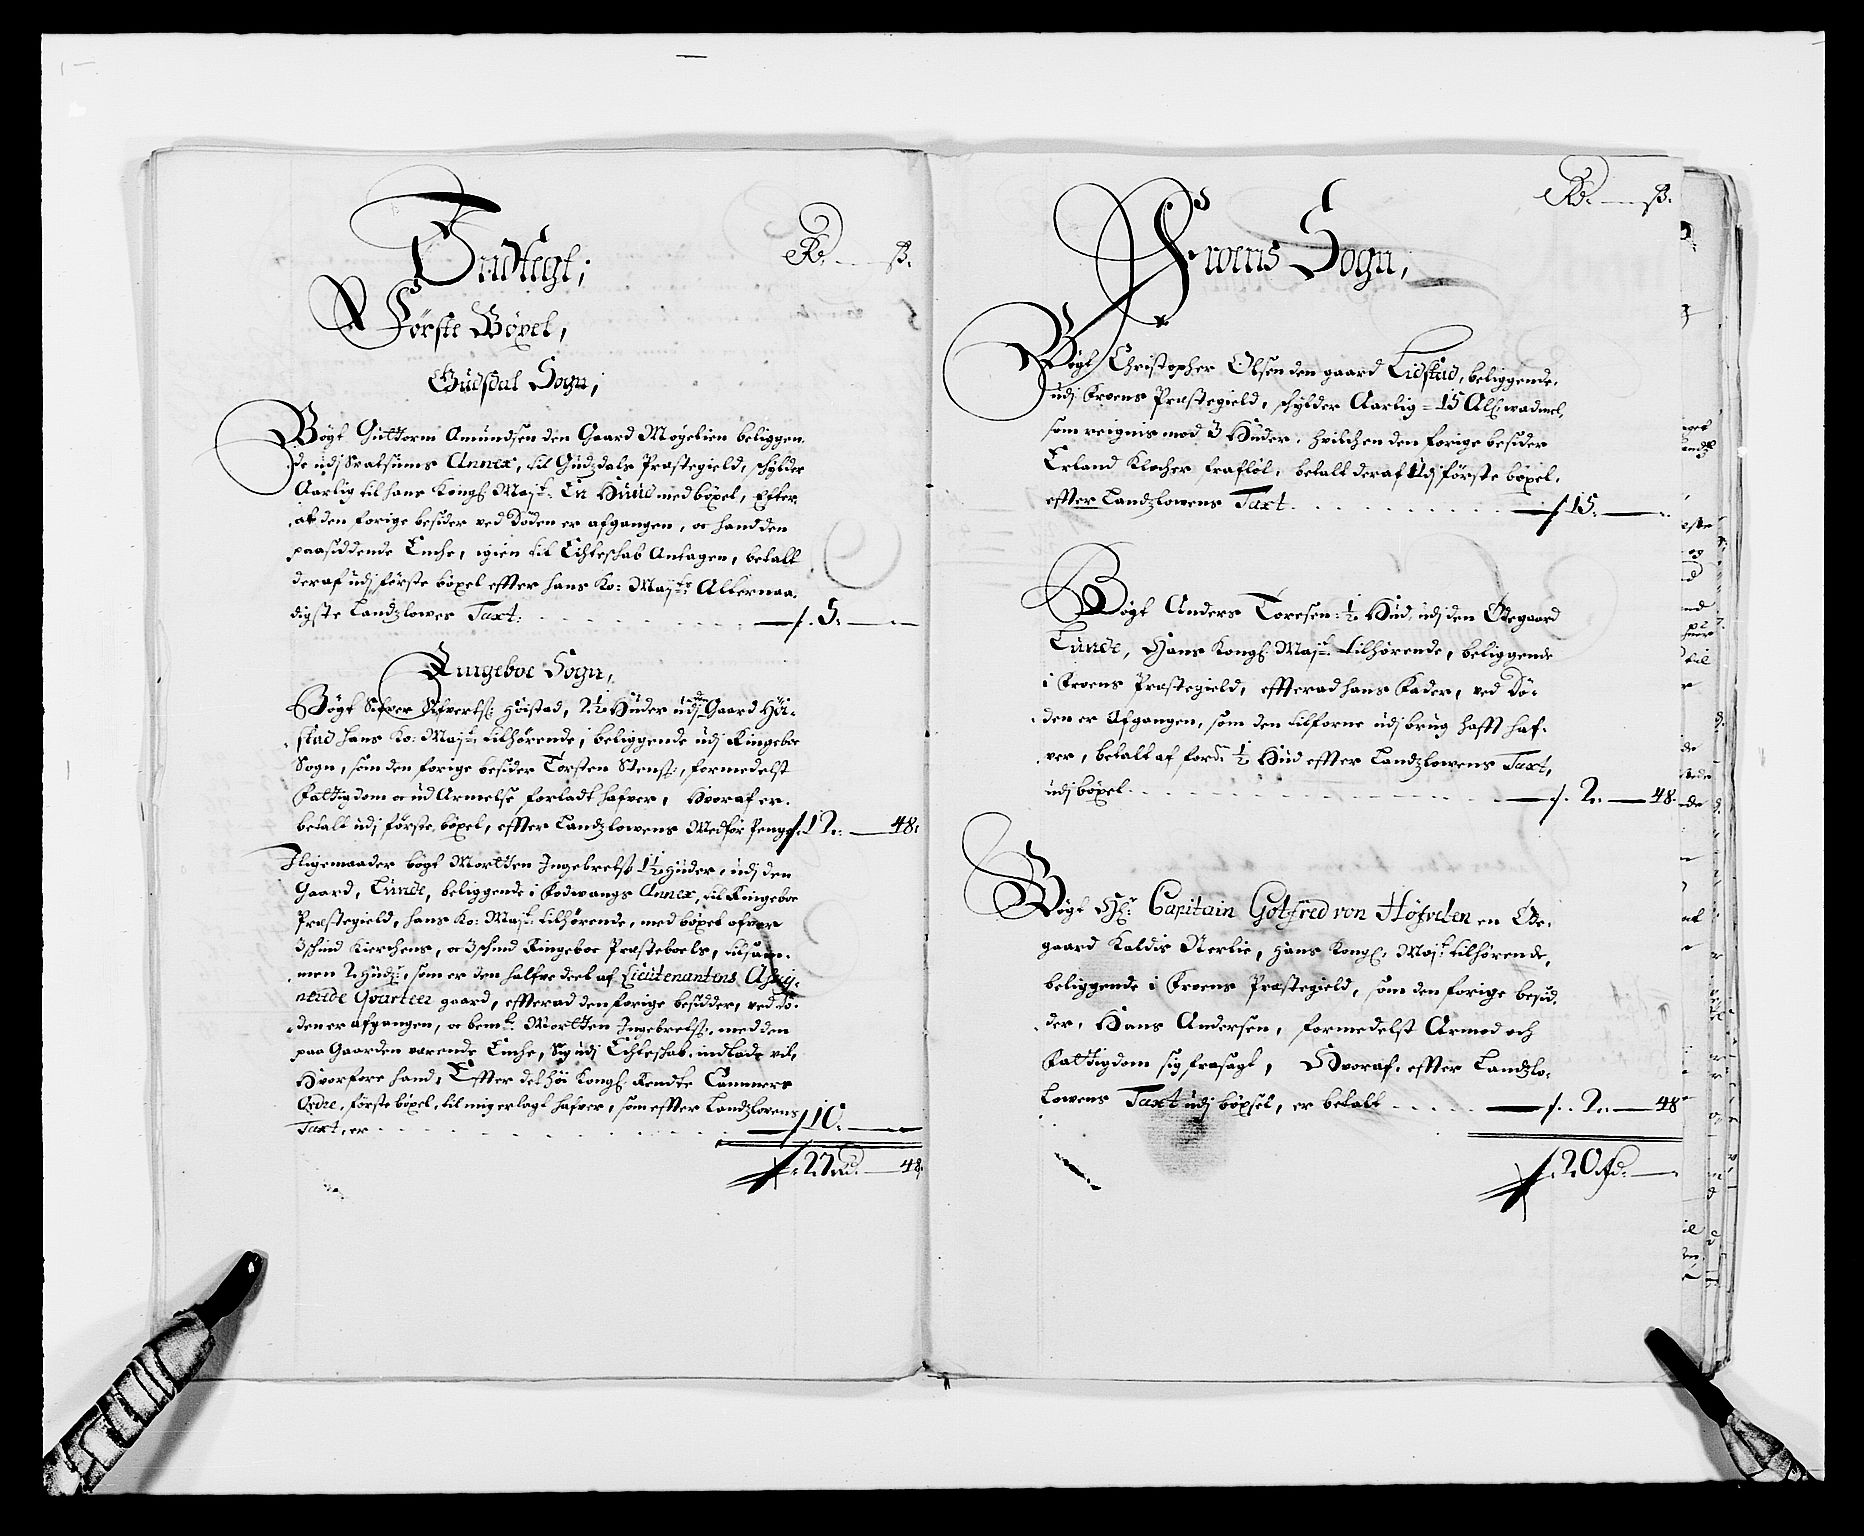 Indtegt;
Rd. ß.
Første Böxel,
Gudsdal Sogn;
Bögt Guttorm Amundsen den Gaard Møgelien beliggen,
de udj Svatsums Annex, til Gudzdals Præstegield, schylder
Aarlig til hans Kongl: Majt: En Huud med böxel, Efter,
at den forige besider ved Döden er afgangen, oc hand den
paasiddende Enche, igien til Echteschab Antagen, betalt
deraf udj förste böxel effter hans Ko: Majts: Allernaa,
digste Landzlowes Taxt: 5:
Ringeboe Sogn,
Bögt Sifver Sifverts: Höistad, 2½ Huder udj den Gaard Höi-
stad hans Ko: Majt: tilhörende, beliggende udj Ringeboe
Sogn, som den forige besider Torsten Stens:, formedelst
fattigdom oc ud Armelse forladt hafver, Hvoraf er
betalt udj förste böxel, effter Landzlowens Medför Penge 12: 48:
Iligemaader bögt Mortten Ingebrets: 1½ Huder, udj den
Gaard, Lunde, beliggende i Fodwangs Annex, til Ringeboe
Præstegield, hans Ko: Majt: tilhörende, med böxel ofver
3 schind Kierchens, oc 3 schind Ringeboe Præsteboels, tilsam-
men 2 Hudr: som er den halfve deel af Lieutenantens Asig-
nerede Qvarteer gaard, effterad den forige besidder, ved Dö-
den er afgangen, oc bemt: Mortten Ingebrets: med den
paa Gaarden varende Enche, Sig udj Echteschab indlade vil,
Hvorfore hand, Effter det höi Kongl: Rendte Cammers
Ordre, förste böxel, til mig erlagt hafver, som effter Landzlovens
Taxt, er 10:
27 rd. 48:
Rd. ß.
Froens Sogn,
Bögt Christopher Olsen den gaard Lidstad, beliggende,
udj Froens Præstegield, schylder Aarlig 15 Al: wadmel,
som reignis mod 3 Huder, hvilchen den forige besider
Erland Klocher frafløt, betalt deraf udj förste böxel,
effter Landzlowens Taxt 15:
Bögt Anders Toresen: ½ Hud, udj den Ödegaard
Lunde, Hans Kongl: Majt: tilhörende, beliggende
i Froens Præstegield, effterad hans Fader, ved Dö-
den er Afgangen, som den tilforne udj brug hafft haf-
ver, betalt af forde ½ Hud effter Landzlowens Taxt,
udj böxel 2: 48:
Bögt Hr: Capitain Gotfred von en Öde-
gaard Kaldis Nerlie, Hans Kongl: Majt: tilhörende,
beliggende i Froens Præstegield, som den forige besid,
der, Hans Andersen, formedelst Armod och
Fattigdom sig frasagt, Hvoraf, effter Landzlo-
lowens Taxt udj böxsel, er betalt 2: 48
20 rd: